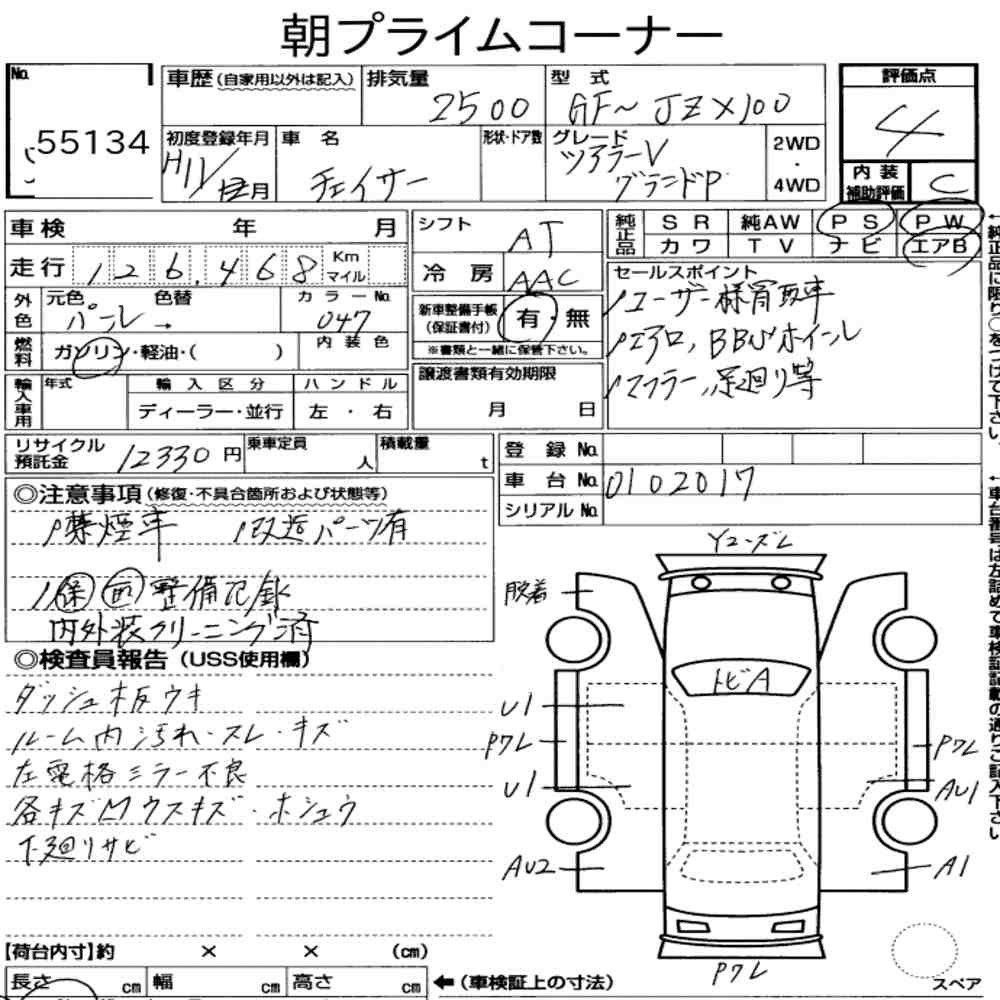 朝プライムコーナー
No. 55134
車歴 (自家用以外は記入) 排気量 2500 型式 GF〜JZX100
評価点 4
初度登録年月 H11/ 月 車名 チェイサー 形状・ドア数 グレード ツアラーV グランドP 2WD・4WD
内装補助評価 C
車検 年 月
シフト AT
純正品 SR 純AW PS PW
カワ TV ナビ エアB
走行 126,468 Km マイル
冷房 AAC
外色 元色 パール → 色替 カラーNo. 047
新車整備手帳 (保証書付) 有・無
※書類と一緒に保管下さい。
燃料 ガソリン・軽油・( ) 内装色
セールスポイント
ユーザー様買取車
エアロ, BBSホイール
マフラー, 足廻り等
輸入車用 年式 輸入区分 ハンドル
ディーラー・並行 左・右
譲渡書類有効期限
月 日
リサイクル預託金 12330円 乗車定員 人 積載量 t
登録No.
車台No. 0102017
シリアルNo.
◎注意事項(修復・不具合箇所および状態等)
禁煙車 改造パーツ有
保 整備記録
内外装クリーニング済
◎検査員報告(USS使用欄)
ダッシュ板ウキ
ルーム内汚れ・スレ・キズ
左電格ミラー不良
各キズMウスキズ・ホシュウ
下廻りサビ
Yユーズレ
脱着
トビA
U1
Pワレ
U1
AU2
Pワレ
AU1
A1
Pワレ
スペア
【荷台内寸】約 × × (cm)
長さ cm 幅 cm 高さ cm ←(車検証上の寸法)
←純正品に限り○をつけて下さい。
←車台番号は左詰めで車検証記載の通りご記入下さい